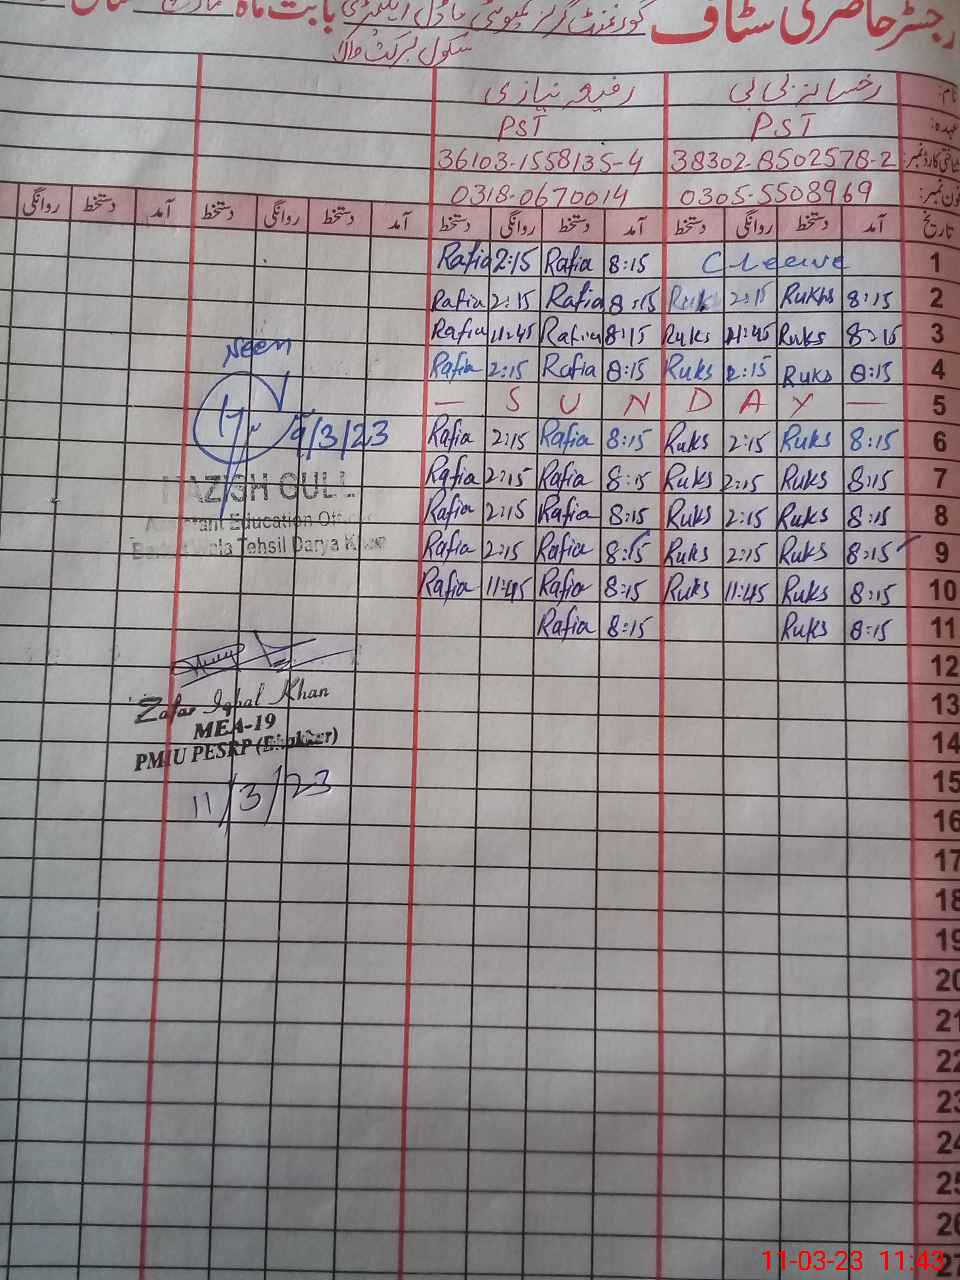 رجسٹر حاضری سٹاف گورنمنٹ گرلز کمیونٹی ماڈل ایلیمنٹری بابت ماہ
سکول برکت والا
نام: رخسانہ بی بی رفیعہ نیازی
عہدہ: PST PST
شناختی کارڈ نمبر: 38302-8502578-2 36103-1558135-4
فون نمبر: 0305-5508969 0318-0670014
تاریخ آمد دستخط روانگی دستخط آمد دستخط روانگی دستخط آمد دستخط روانگی دستخط آمد دستخط روانگی
Rafia 2:15 Rafia 8:15 C Leeive 1
Rafia 2:15 Rafia 8:15 Ruk 2:15 Rukhs 8:15 2
Rafia 11:45 Rafia 8:15 Ruks 11:45 Ruks 8:15 3
Rafia 2:15 Rafia 8:15 Ruks 2:15 Ruks 8:15 4
— S U N D A Y — 5
Rafia 2:15 Rafia 8:15 Ruks 2:15 Ruks 8:15 6
Rafia 2:15 Rafia 8:15 Ruks 2:15 Ruks 8:15 7
Rafia 2:15 Rafia 8:15 Ruks 2:15 Ruks 8:15 8
Rafia 2:15 Rafia 8:15 Ruks 2:15 Ruks 8:15 9
Rafia 11:45 Rafia 8:15 Ruks 11:45 Ruks 8:15 10
Rafia 8:15 Ruks 8:15 11
12
13
14
15
16
17
18
19
20
21
22
23
24
25
26
27
Neem
9/3/23
NAZISH GULL
Assistant Education Officer
Wala Tehsil Darya Khan
Zafar Iqbal Khan
MEA-19
PMIU PESRP (Bhakkar)
11/3/23
11-03-23 11:43